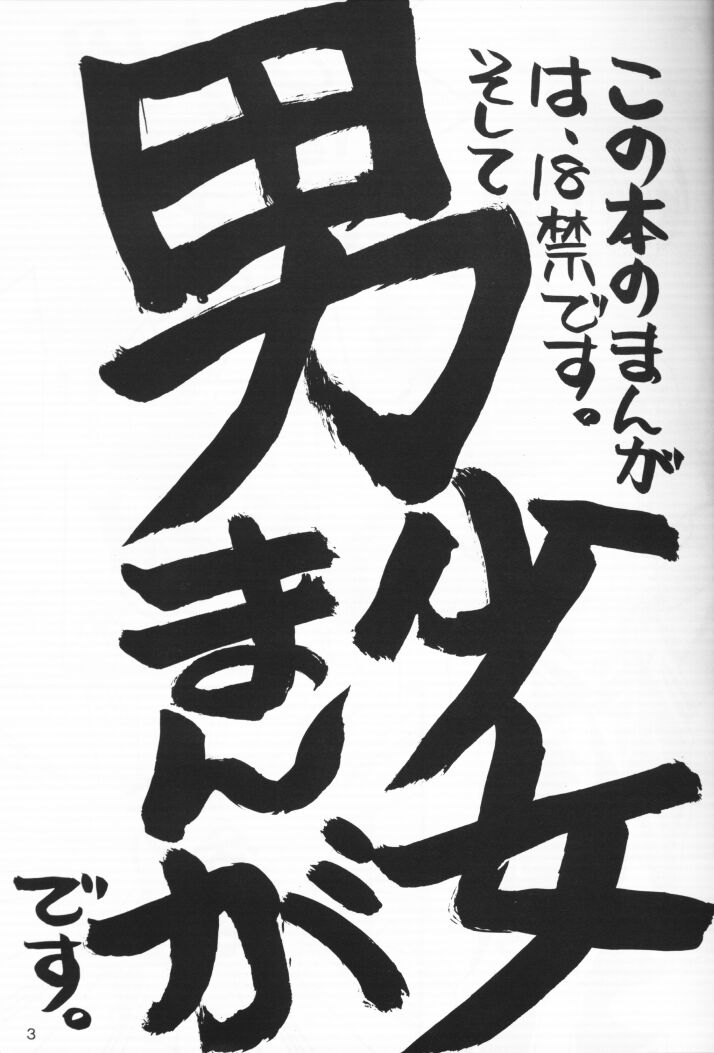 この本のまんが
は、18禁です。
そして
男
少女
まんが
です。
3